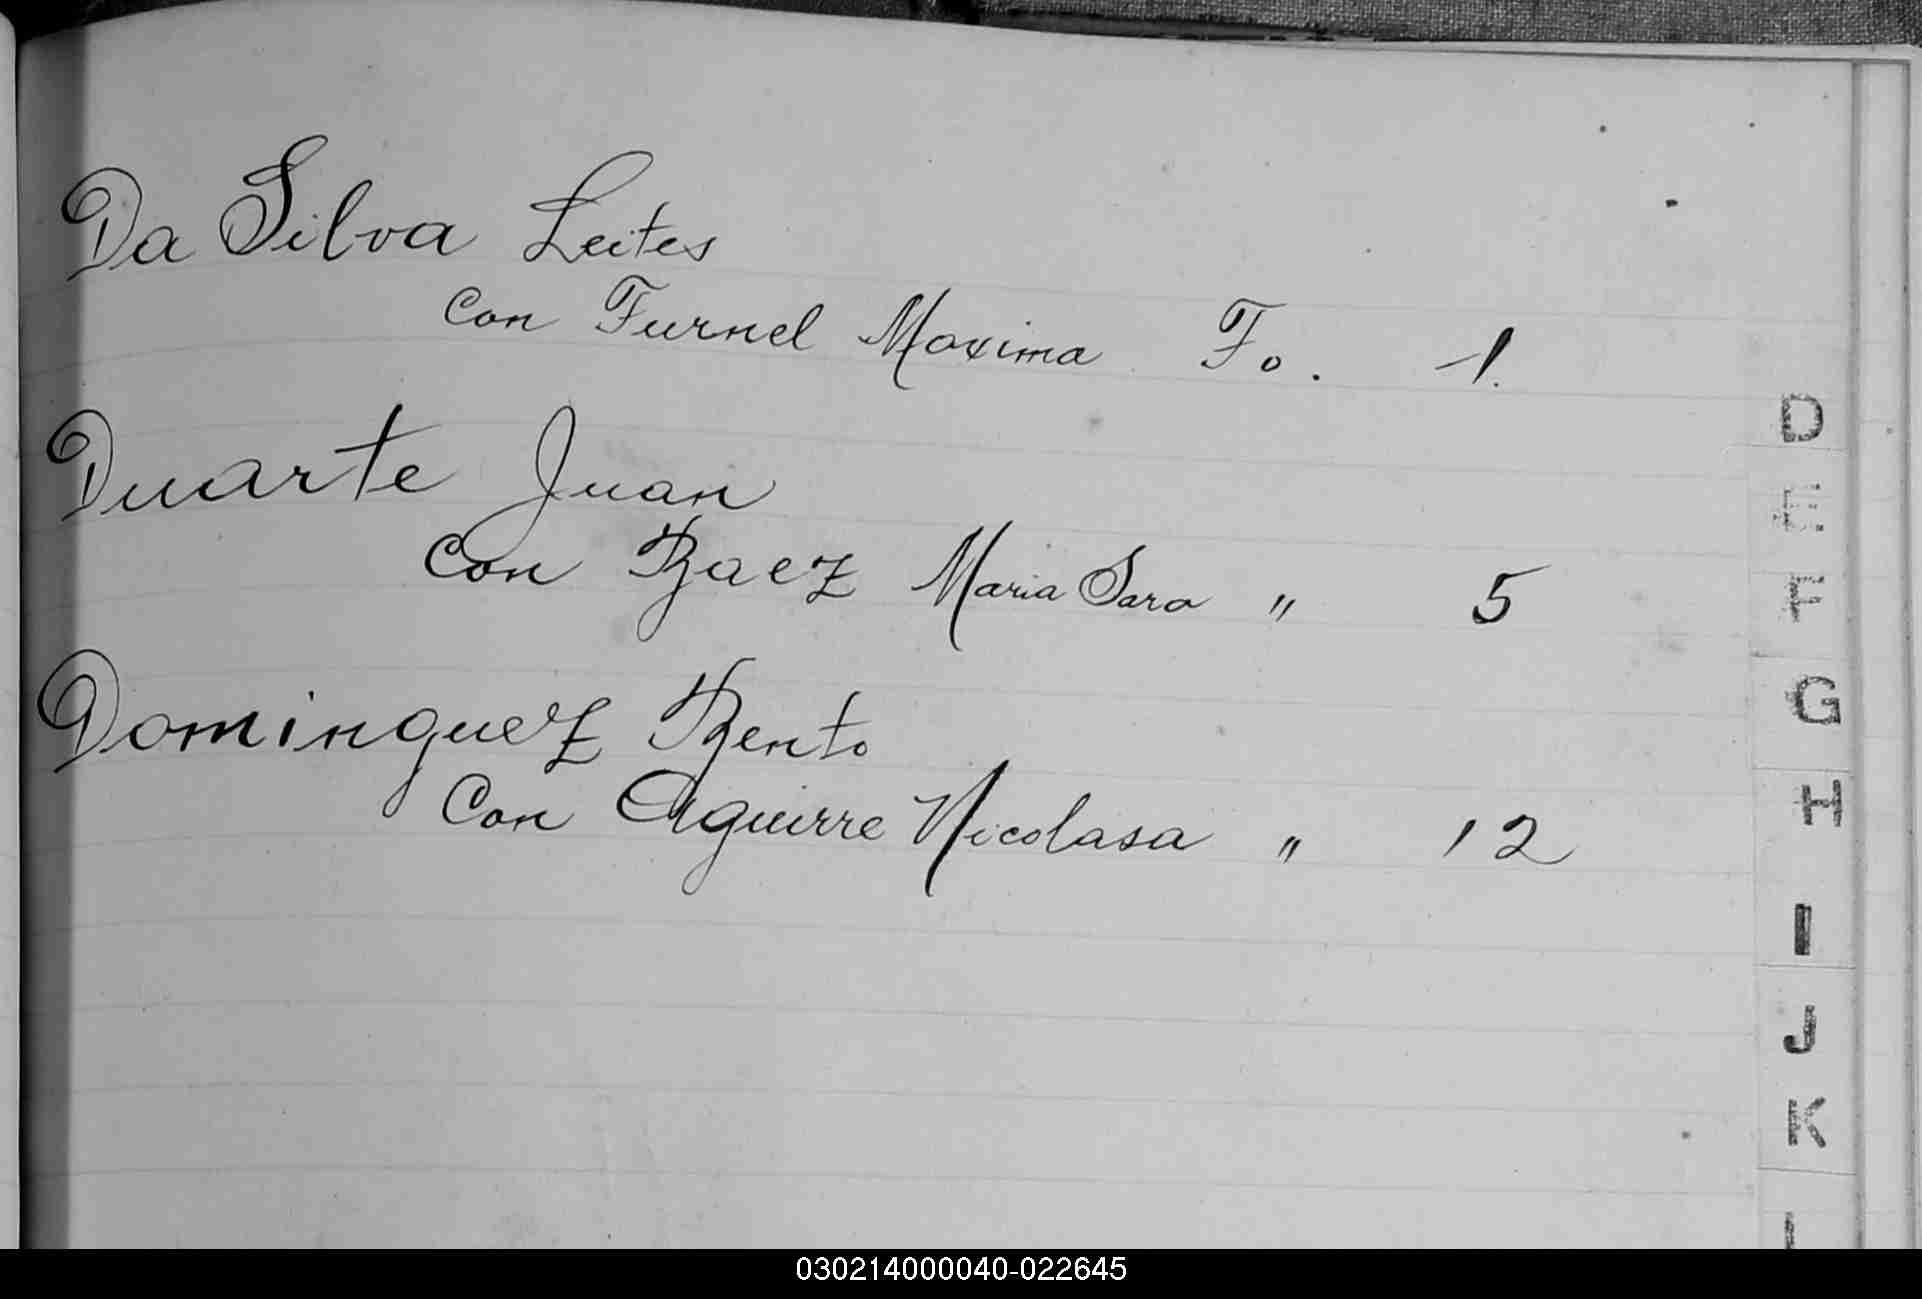 Da Silva Leites
Con Furnel Maxima Fo. 1.
Duarte Juan
Con Baez Maria Sara " 5
Dominguez Bento
Con Aguirre Nicolasa " 12
D
E
F
G
H
I
J
K
L
030214000040-022645